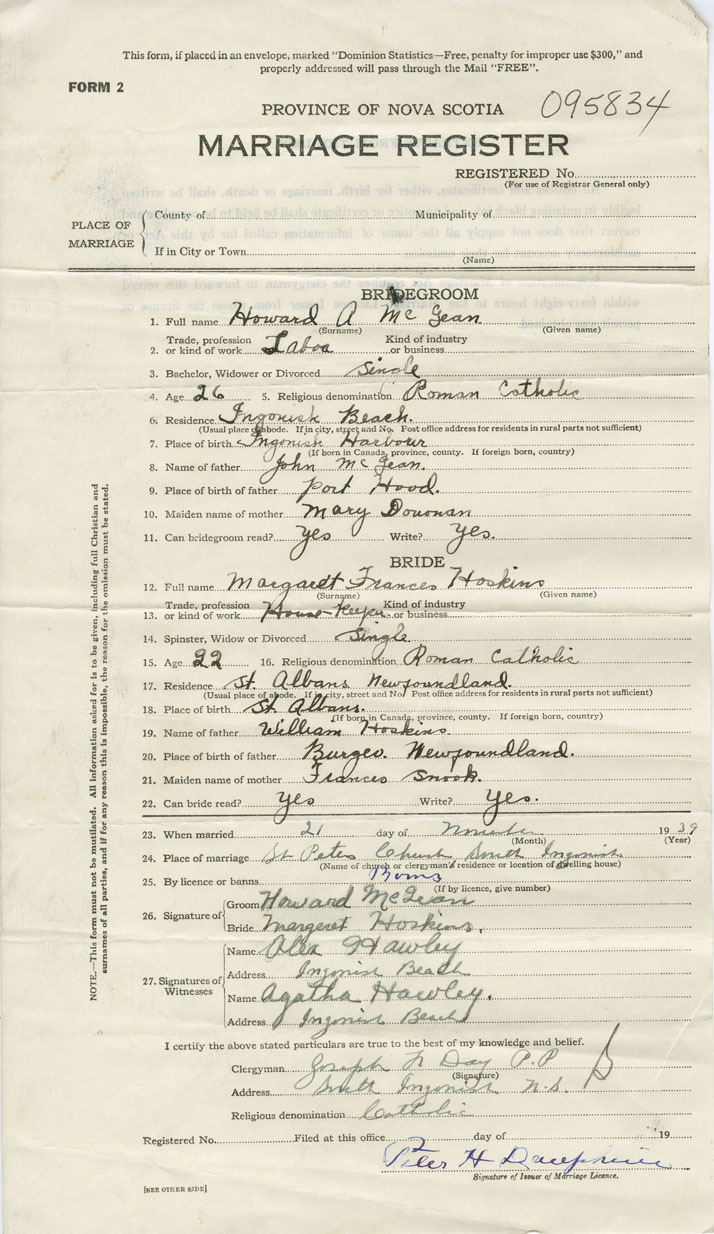 This form, if placed in an envelope, marked "Dominion Statistics—Free, penalty for improper use $300," and
properly addressed will pass through the Mail "FREE".
FORM 2
PROVINCE OF NOVA SCOTIA 095834
MARRIAGE REGISTER
REGISTERED No.
(For use of Registrar General only)
PLACE OF MARRIAGE
County of Municipality of
If in City or Town
(Name)
BRIDEGROOM
1. Full name Howard A McGean
(Surname) (Given name)
2. Trade, profession or kind of work Kind of industry or business
3. Bachelor, Widower or Divorced Single
4. Age 26 5. Religious denomination Roman Catholic
6. Residence Ingonish Beach.
(Usual place of abode. If in city, street and No. Post office address for residents in rural parts not sufficient)
7. Place of birth Ingonish Harbour
(If born in Canada, province, county. If foreign born, country)
8. Name of father John McGean.
9. Place of birth of father Port Hood.
10. Maiden name of mother Mary
11. Can bridegroom read? Yes Write? Yes.
BRIDE
12. Full name Margaret Frances Hoskins
(Surname) (Given name)
13. Trade, profession or kind of work House-Keeper. Kind of industry or business
14. Spinster, Widow or Divorced Single
15. Age 22 16. Religious denomination Roman Catholic
17. Residence St. Albans Newfoundland.
(Usual place of abode. If in city, street and No. Post office address for residents in rural parts not sufficient)
18. Place of birth St. Albans.
(If born in Canada, province, county. If foreign born, country)
19. Name of father William Hoskins
20. Place of birth of father Burgeo. Newfoundland.
21. Maiden name of mother Frances Snook.
22. Can bride read? Yes Write? Yes.
23. When married 21 day of 1939
(Month) (Year)
24. Place of marriage St Peters Church South Ingonish
(Name of church or clergyman's residence or location of dwelling house)
25. By licence or banns
(If by licence, give number)
26. Signature of
Groom Howard McGean
Bride Margaret Hoskins.
27. Signatures of Witnesses
Name Alex Hawley
Address Ingonish Beach
Name Agatha Hawley.
Address Ingonish Beach
I certify the above stated particulars are true to the best of my knowledge and belief.
Clergyman Joseph Day P.P
(Signature)
Address South Ingonish N.S.
Religious denomination Catholic
Registered No. Filed at this office day of 19
Peter H
Signature of Issuer of Marriage Licence.
[SEE OTHER SIDE]
NOTE.—This form must not be mutilated. All information asked for is to be given, including full Christian and
surnames of all parties, and if for any reason this is impossible, the reason for the omission must be stated.